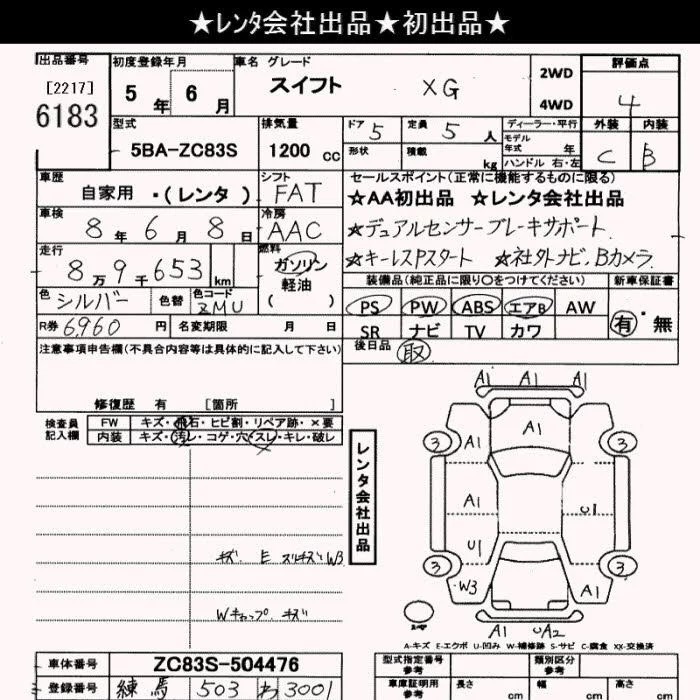 ★レンタ会社出品★初出品★
出品番号 初度登録年月 車名 グレード 評価点
[2217] 5年 6月 スイフト XG 2WD 4
6183 4WD 外装 内装
型式 排気量 ドア 5 定員 5人 ディーラー・平行 C B
5BA-ZC83S 1200cc 形状 積載 kg モデル年式 年
ハンドル 右・左
車歴 シフト セールスポイント(正常に機能するものに限る)
自家用 ・(レンタ) FAT ★AA初出品 ★レンタ会社出品
車検 冷房 ★デュアルセンサーブレーキサポート
8年 6月 8日 AAC ★キーレスPスタート ★社外ナビ,Bカメラ
走行 燃料
8万9千653km ガソリン 装備品(純正品に限り○をつけてください) 新車保証書
軽油
色 シルバー 色替 色コード ZMU ( ) PS PW ABS エアB AW 有・無
R券 6,960円 名変期限 月 日 SR ナビ TV カワ
注意事項申告欄(不具合内容等は具体的に記入して下さい) 後日品 取
修復歴 有 [箇所 ]
検査員記入欄 FW キズ・飛石・ヒビ割・リペア跡・×要
内装 キズ・汚レ・コゲ・穴・スレ・キレ・破レ
レンタ会社出品
A1 A1 A1
3 A1 A1 3
A1 U1
U1
3 3
W3 A1
A1 UA2
キズ E スリキズ W3
Wキャップ キズ
スペヤ
A-キズ E-エクボ U-凹み W-補修跡 S-サビ C-腐食 XX-交換済
車体番号 ZC83S-504476 型式指定番号 参考 類別区分 参考
登録番号 練馬 503 わ 3001 車庫証明用 参考 長さ cm 幅 cm 高さ cm